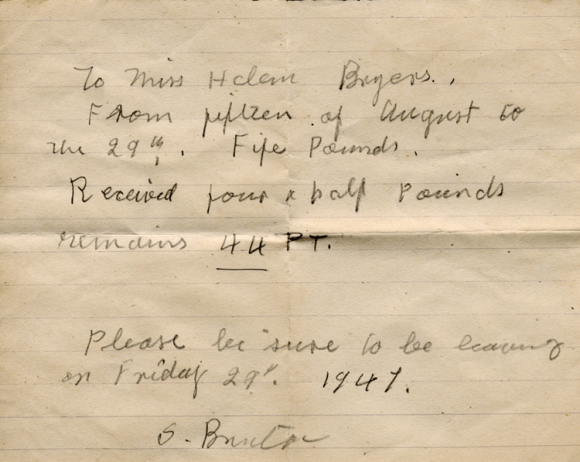 To Miss Helen Bryers.,
From fiftzen of August to
the 29th. Fife Pounds.
Received four & half Pounds
remains 44 PT.
Please be sure to be leaving
on Friday 29th. 1947.
S.